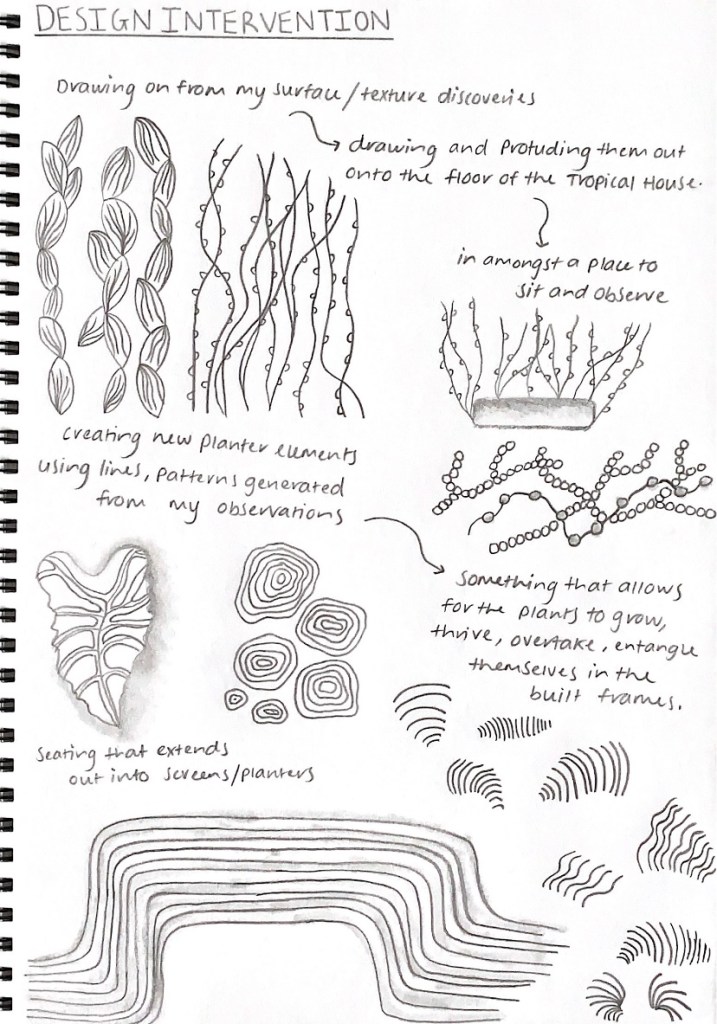 DESIGN INTERVENTION
Drawing on from my surface/texture discoveries
drawing and Protuding them out
onto the floor of the Tropical House.
in amongst a place to
sit and observe
creating new planter elements
using lines, patterns generated
from my observations
something that allows
for the plants to grow,
thrive, overtake, entangle
themselves in the
built frames.
Seating that extends
out into screens/planters